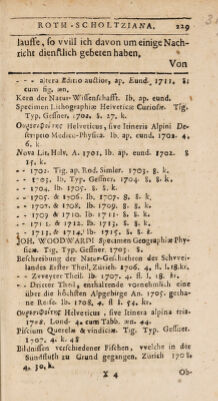 ROTH-SCHOLTZIANA. 229
lausse, so vvill ich davon um einige Nach-
richt dienstlich gebeten haben,
Von
- - altera Editio auctior, ap. Eund. 1711, 8:
cum fig. æn.
Kern der Natur-Wissenschafft. Ib. ap. eund.
Specimen Lithographiæ Helveticæ Curiosæ. Tig.
Typ. Gessner. 1702. 8. 27. k.
Helveticus, sive Itineris Alpini De-
scriptio Medico-Physica. Ib. ap. eund. 1702. 4.
6. k.
Nova Lit. Helv. A. 1701, ib. ap. eund. 1702. 8.
15. k.
- - 1702. Tig. ap. Rod. Simler. 1703. 8. k.
- - 1703, Ib, Typ. Gessner. 1704. 8. 8. k.
- - 1704, ib. 1705. 8. 8. k.
- - 1705. & 1706. ib. 1707. 8. 8. k.
- - 1707 & 1708, ib. 1709. 8. 8. k.
- - 1709 & 1710. ib. 1711. 8. 8. k.
- - 1711. & 1712. ib. 1713. 8. 8. k.
- - 1713, & 1714, ib. 1715. 8. 8. k.
JOH. WOODWARDI Specimen Geographiæ Phy-
sicæ. Tig. Typ. Gessner. 1705. 8.
Beschreibung der Natur-Geschichten der Schvvei-
landes Erster Theil, Zürich 1706. 4, fl. 1.18.kr.
- - Zvveyter Theil. Ib. 1707. 4, fl. 1. 18. kr.
- - Dritter Theil, enthaltende vornehmlich eine
über die höchsten Alpgebirge An. 1705. getha-
ne Reise. Ib. 1708, 4, fl. 54, kr.
Helveticus, sive Itinera alpina tria.
1718. Lond. 4. cum Tabb. æn. 44.
Piscium Querelæ & vindiciæ. Tig. Typ. Gessner.
1707. 4. k. 48
Bildnissen verschiedener Fischen, welche in die
Sündfluth zu Grund gegangen. Zürich 1708.
4. 30. k.
X 4 Ob-